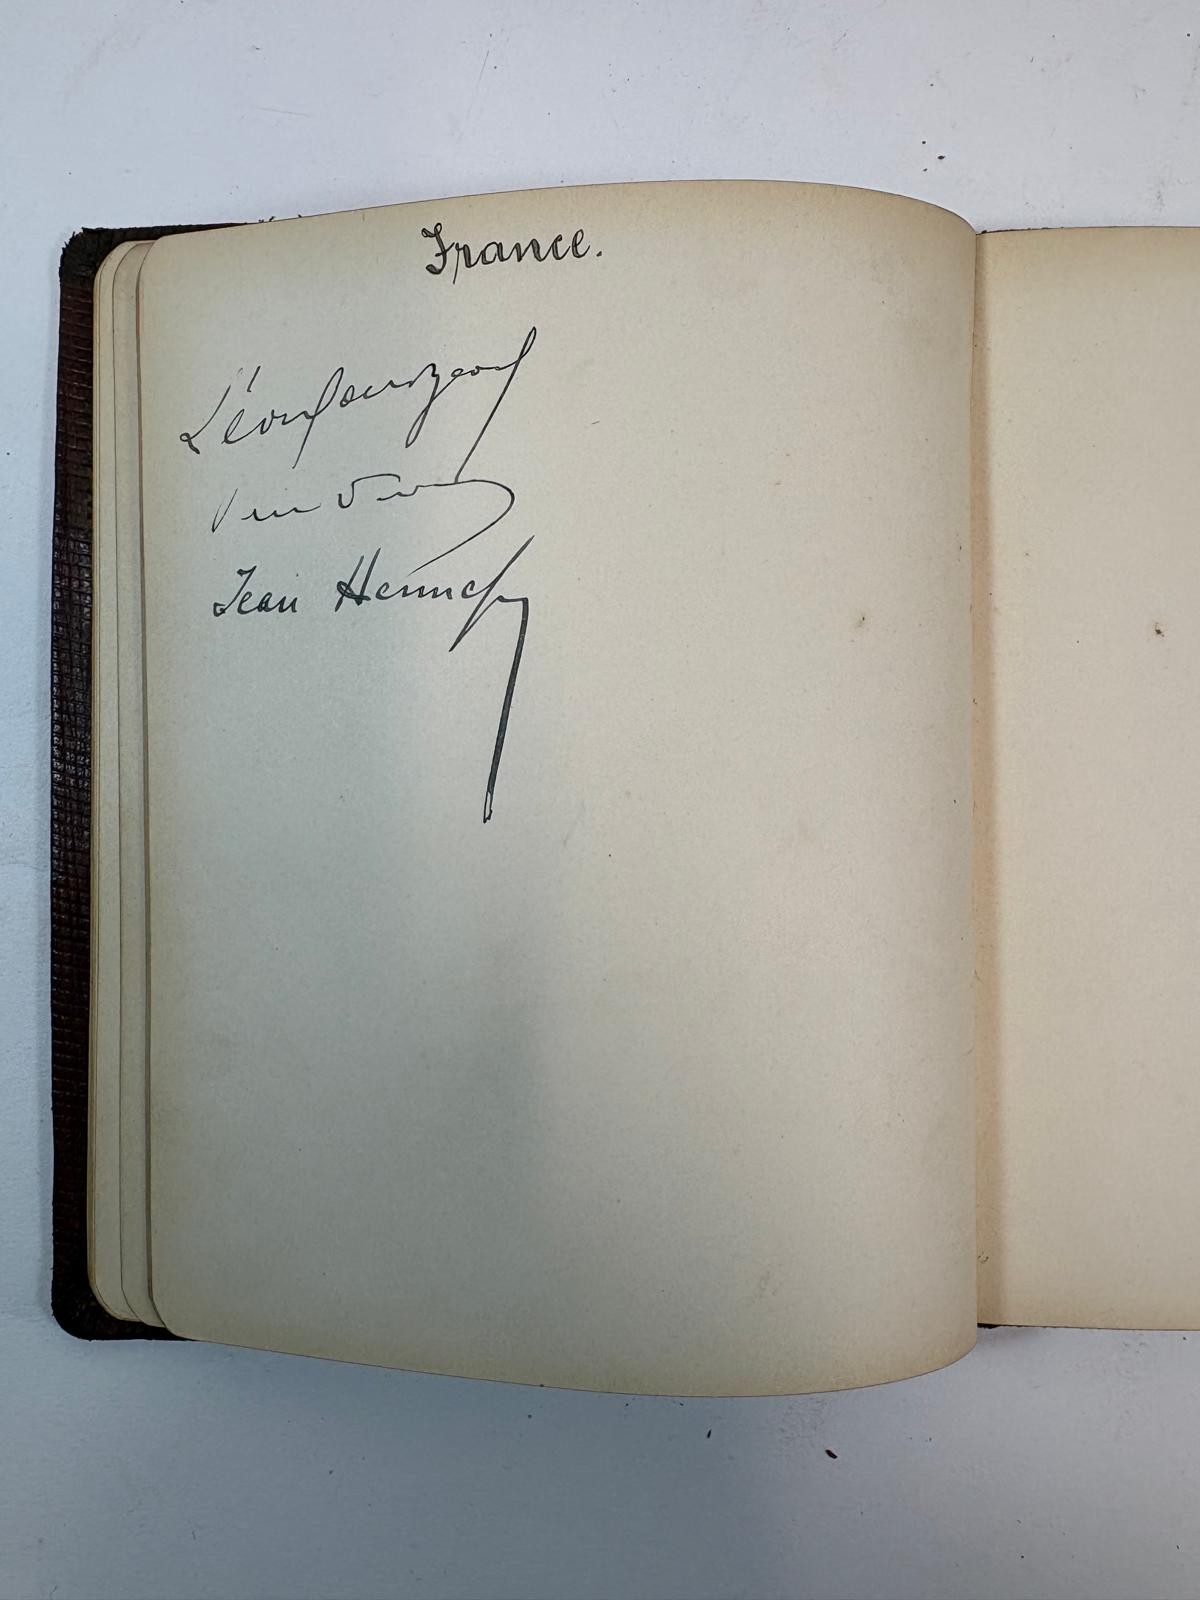 France.
Léon Bourgeois
Jean Hennessy